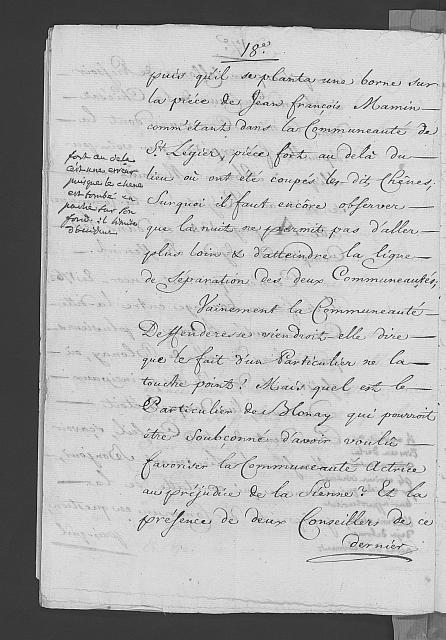 18.e
puis qu'il se planta une borne sur
la pièce de Jean François Mamin
comm'étant dans la Communauté de
St. Légier, pièce fort au delà du
lieu où ont été coupés les dit Chênes,
Surquoi il faut encôre observer
que la nuit ne permit pas d'aller
plus loin & d'atteindre la ligne
de Séparation des deux Communeautés.
fort au dela
c'est une erreur
puisque le chene
est tombé en
partie sur son
fond. il limite
Vainement la Communeauté
Deffenderesse viendroit-elle dire
que le fait d'un Particulier ne la
touche point! Mais quel est le
Particulier de Blonay qui pourroit
être Soubçonné d'avoir voulu
favoriser la Communeauté Actrice
au préjudice de la Sienne? Et la
présence de deux Conseillers de ce
dernier